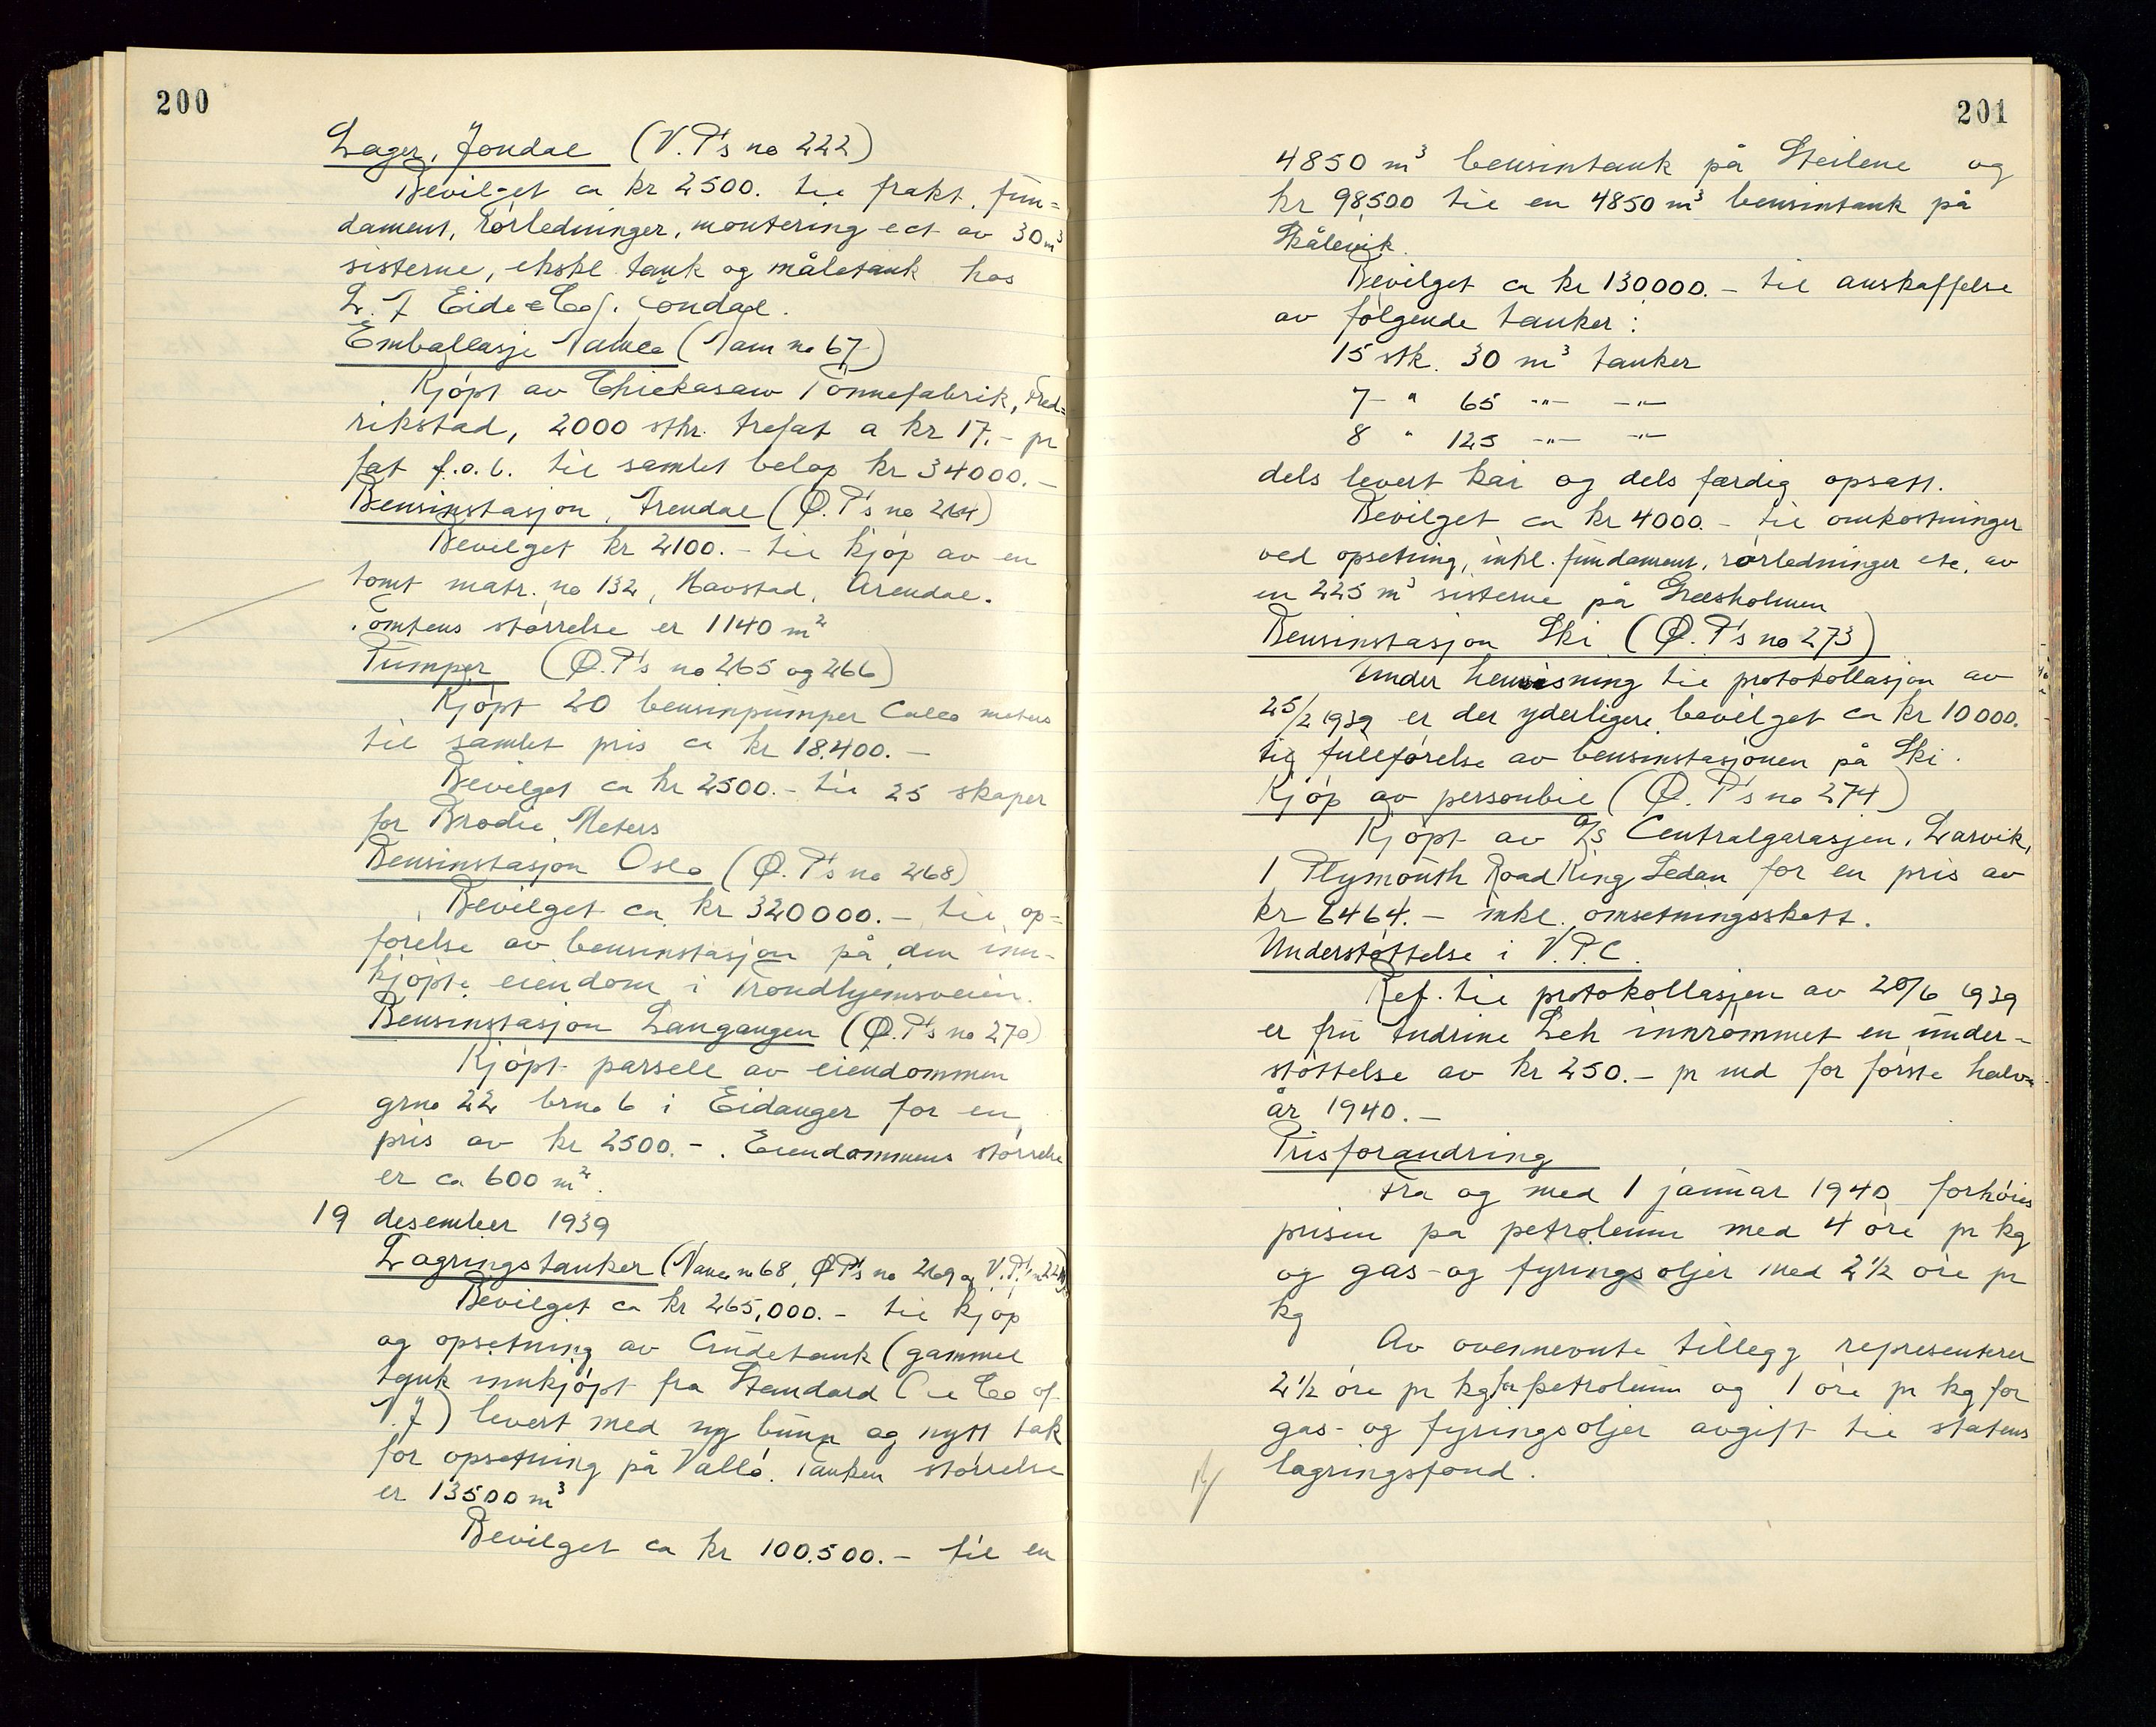 200
Lager, Jondal (V.P's no 222)
Bevilget ca kr 2500. til frakt, fun=
dament, rørledninger, montering ect av 30 m³
sisterne, ekskl tank og måletank hos
L. J Eide & Co/. Jondal.
Emballasje Namco (Nam no 67)
Kjøpt av Chickasaw Tønnefabrik, Fred=
rikstad, 2000 stkr. trefat a kr 17.- pr
fat f.o.b. til samlet beløp kr 34000.-
Bensinstasjon, Arendal (Ø.P's no 264)
Bevilget kr 2100.- til kjøp av en
tomt matr. no 132, Havstad, Arendal.
Tomtens størrelse er 1140 m²
Pumper (Ø.P's no 265 og 266)
Kjøpt 20 bensinpumper Calco meters
til samlet pris ca kr 18.400.-
Bevilget ca kr 2500.- til 25 skaper
for Brodie Meters
Bensinstasjon Oslo (Ø.P's no 268)
Bevilget ca kr 320000.- til op=
førelse av bensinstasjon på den inn-
kjøpte eiendom i Trondhjemsveien.
Bensinstasjon Langangen (Ø.P's no 270)
Kjøpt parsell av eiendommen
grno 22 brno 6 i Eidanger for en
pris av kr 2500.-. Eiendommens størrelse
er ca 600 m².
19 desember 1939
Lagringstanker (Namco no 68, ØP's no 269 og V.P.'s no
Bevilget ca kr 265,000.- til kjøp
og opsetning av Crudetank (gammel
tank innkjøpt fra Standard Oil Co of
N.J) levert med ny bunn og nytt tak
for opsetning på Vallø. Tanken størrelse
er 13500 m³
Bevilget ca kr 100.500.- til en
201
4850 m³ bensintank på Steilene og
kr 98500 til en 4850 m³ bensintank på
Skålevik.
Bevilget ca kr 130000.- til anskaffelse
av følgende tanker:
15 stk. 30 m³ tanker
7 " 65 -"- -"-
8 " 125 -"- -"-
dels levert kai og dels færdig opsatt.
Bevilget ca kr 4000.- til omkostninger
ved opsetning, inkl. fundament, rørledninger etc. av
en 225 m³ sisterne på Greesholmen
Bensinstasjon Ski (Ø.P's no 273)
Under henvisning til protokollasjon av
25/2 1939 er der yderligere bevilget ca kr 10000.
til fullførelse av bensinstasjonen på Ski.
Kjøp av personbil (Ø.P's no 274)
Kjøpt av A/S Centralgarasjen, Larvik,
1 Plymouth Road King Sedan for en pris av
kr 6464.- inkl. omsetningsskatt.
Understøttelse i V.P.C.
Ref. til protokollasjen av 20/6 1939
er fru Andrine Leh innrømmet en under-
støttelse av kr 250.- pr md for første halv-
år 1940.-
Prisforandring
Fra og med 1 januar 1940 forhøies
prisen på petroleum med 4 øre pr kg
og gas- og fyringsoljer med 2½ øre pr
kg
Av ovennevnte tillegg representerer
2½ øre pr kg for petroleum og 1 øre pr kg for
gas- og fyringsoljer avgift til statens
lagringsfond.